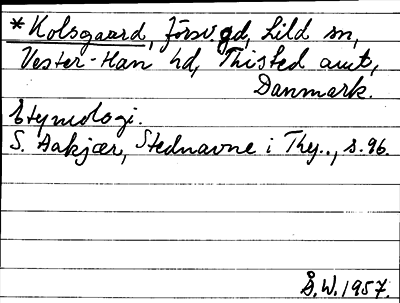 *Kolsgaard, försv. gd, Lild sn,
Vester-Han hd, Thisted amt,
Danmark.
Etymologi.
S. Aakjær, Stednavne i Thy.., s.96.
Å.W.1957.